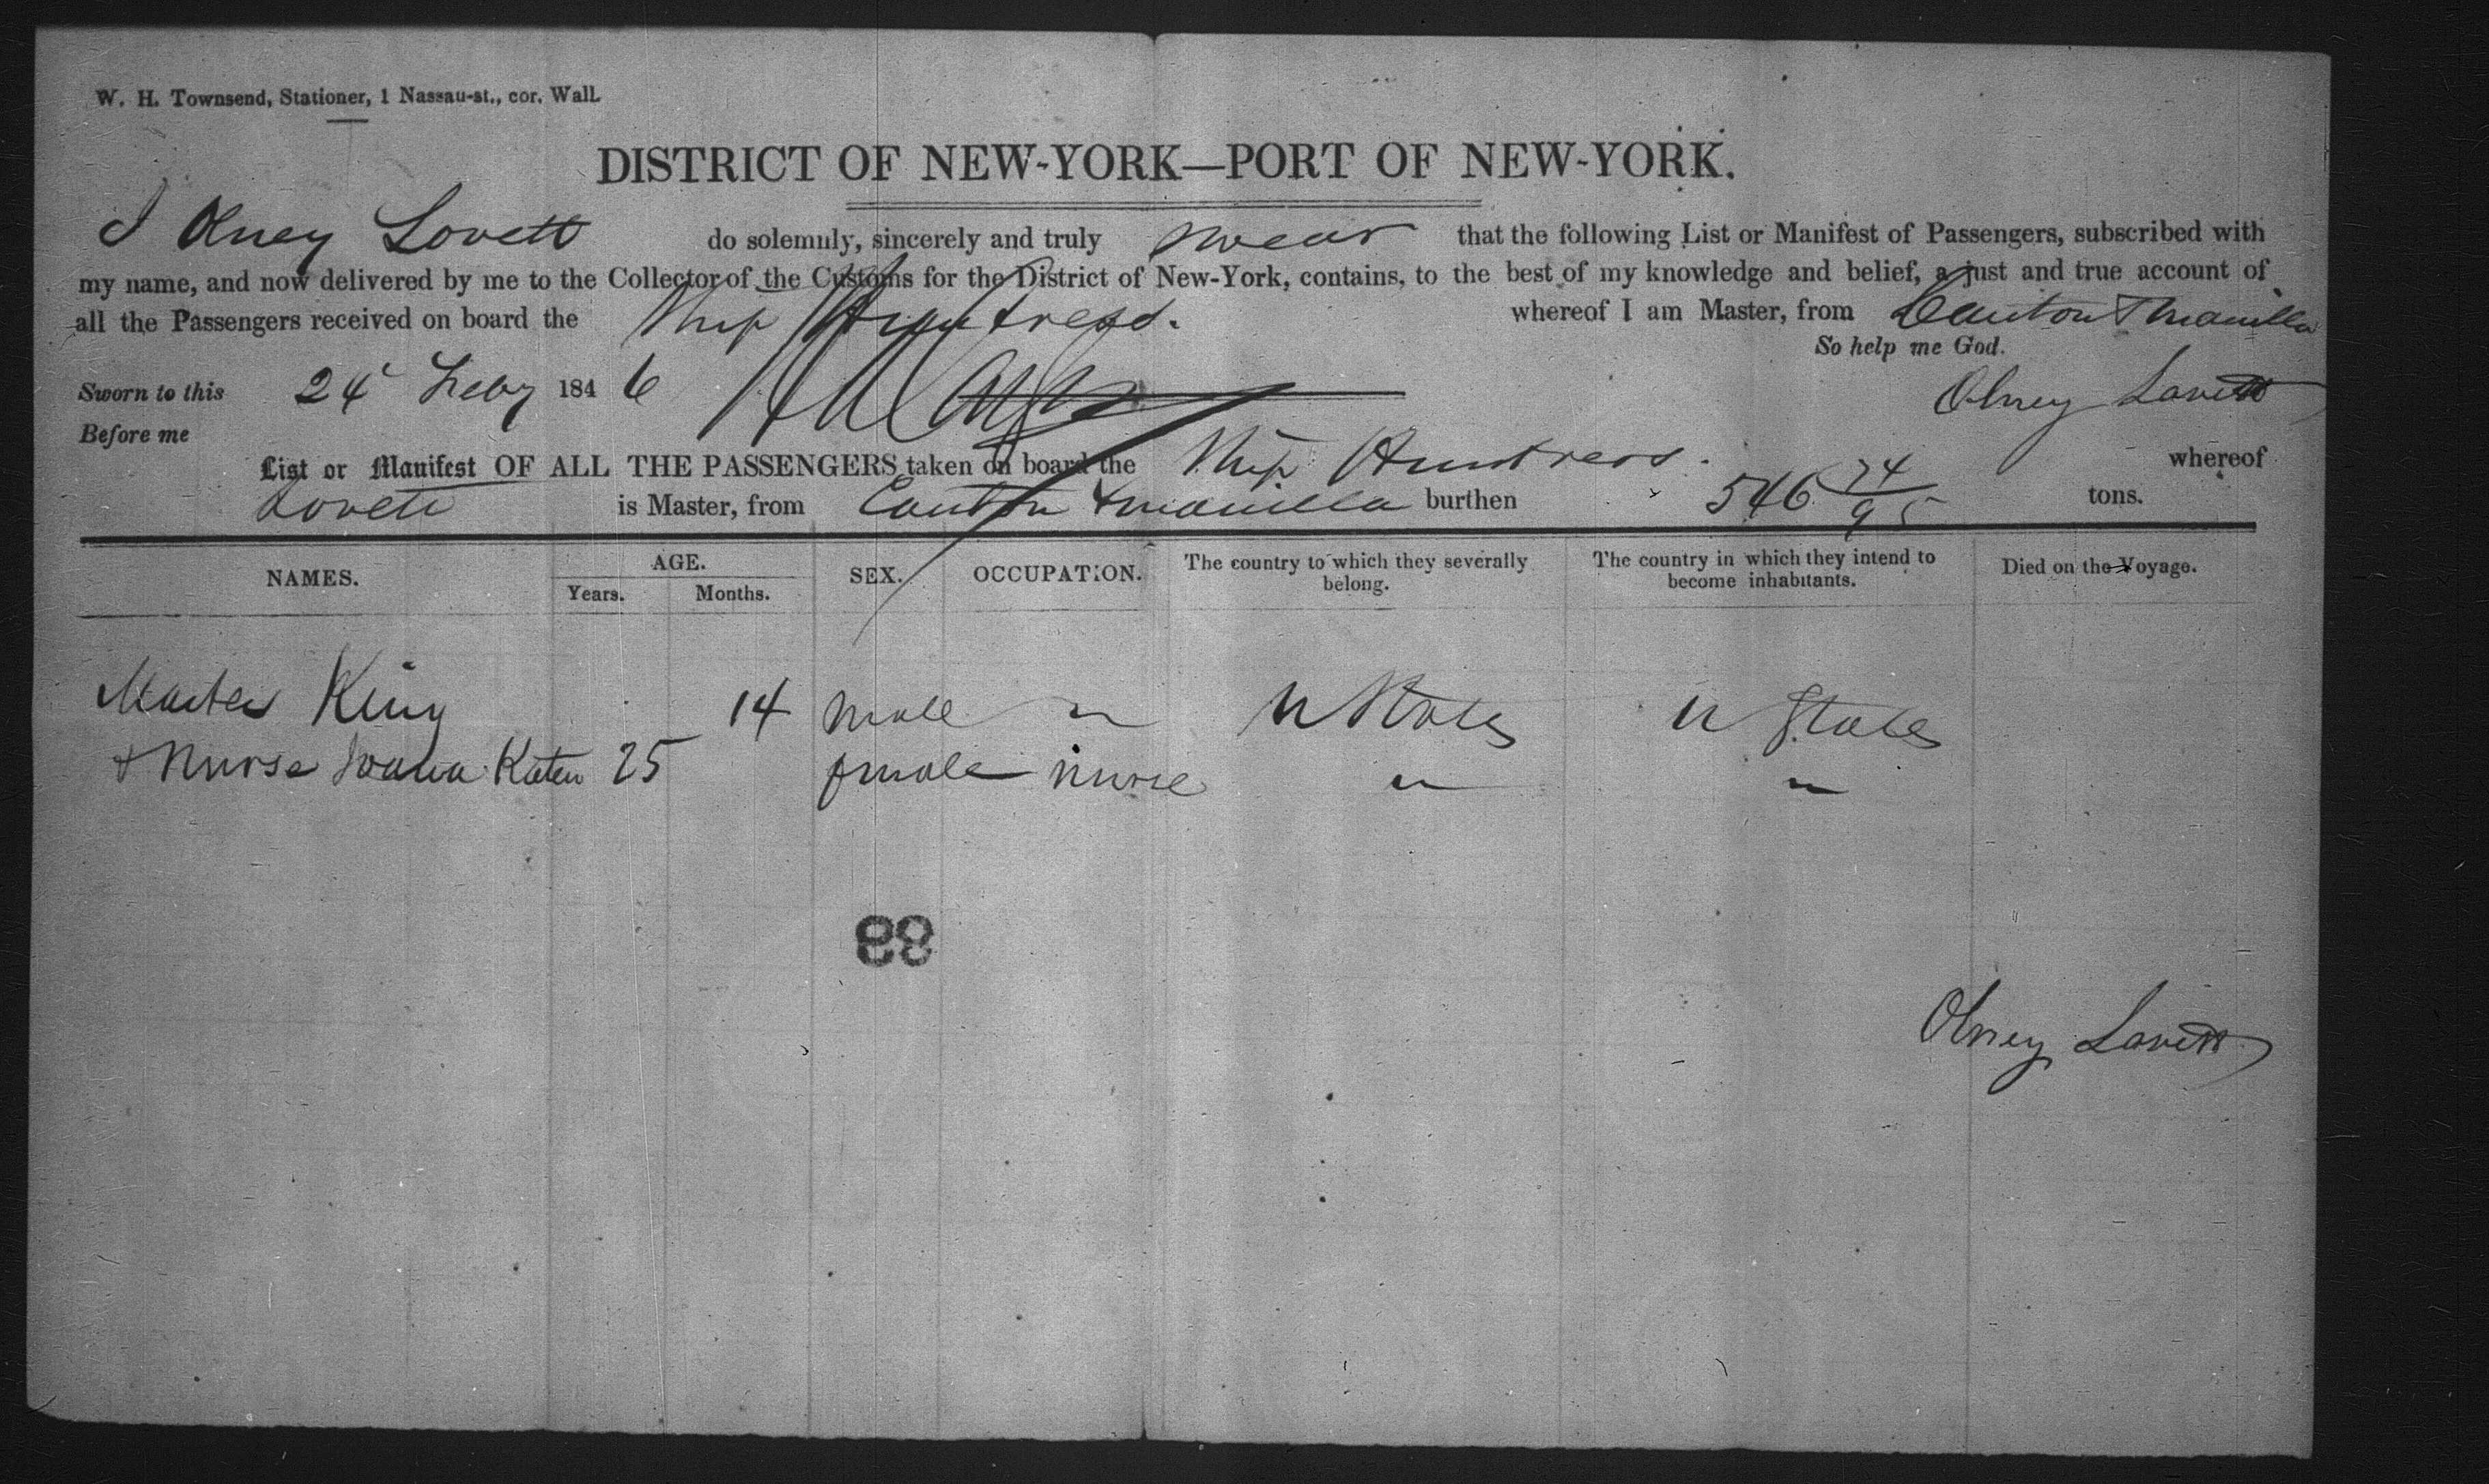 W. H. Townsend, Stationer, 1 Nassau-st., cor. Wall.
DISTRICT OF NEW-YORK—PORT OF NEW-YORK.
I Olney Lovett do solemnly, sincerely and truly swear that the following List or Manifest of Passengers, subscribed with
my name, and now delivered by me to the Collector of the Customs for the District of New-York, contains, to the best of my knowledge and belief, a just and true account of
all the Passengers received on board the Ship Huntress. whereof I am Master, from Canton & Manilla
So help me God.
Sworn to this 24 Feby 1846 Olney Lovett
Before me
List or Manifest OF ALL THE PASSENGERS taken on board the Ship Huntress. whereof
Lovett is Master, from Canton & Manilla burthen 546 74/95 tons.
NAMES. AGE. SEX. OCCUPATION. The country to which they severally belong. The country in which they intend to become inhabitants. Died on the Voyage.
Years. Months.
Master King 14 male " U States U States
& Nurse 25 female nurse " "
88
Olney Lovett